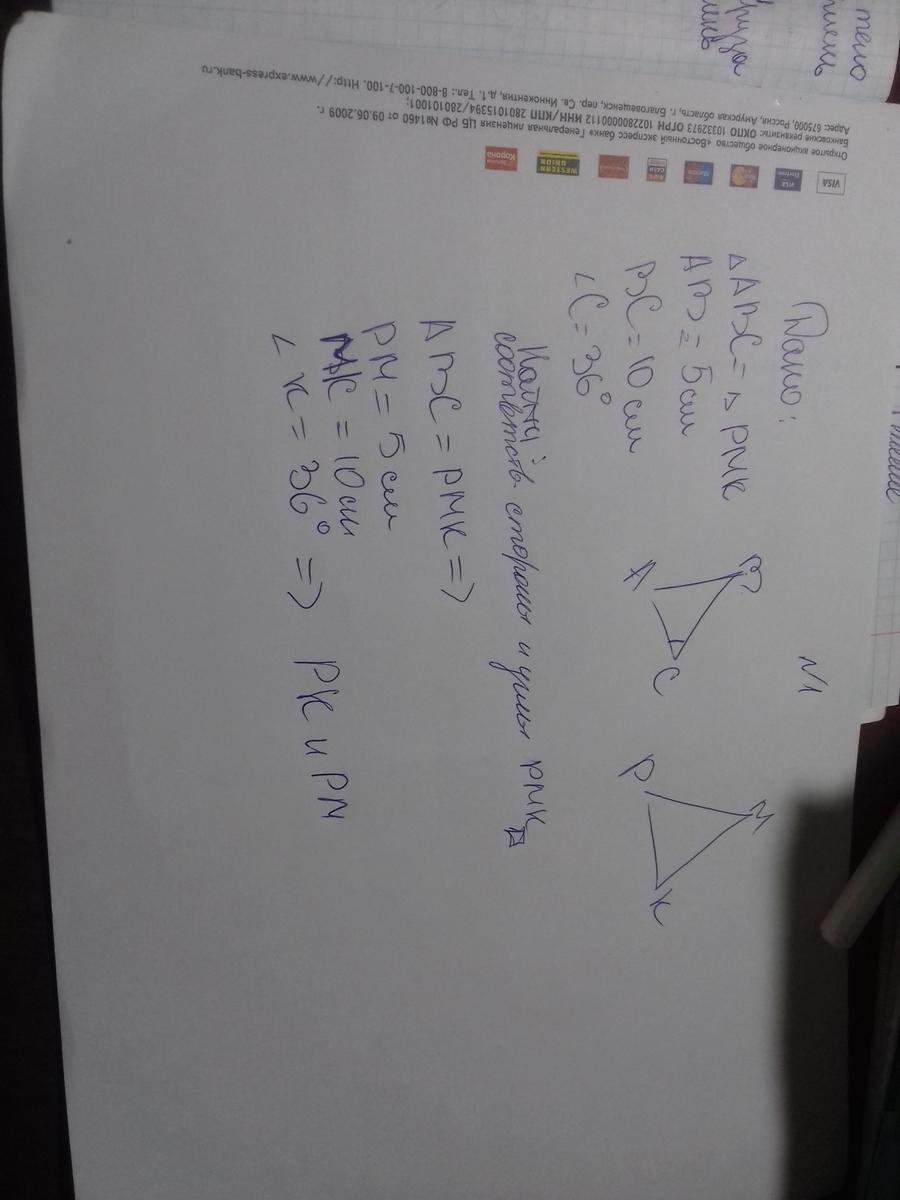 тело
Дано:
N1
△ABC = △PMK
AB = 5 см
BC = 10 см
∠C = 36°
B
A
C
M
P
K
Найти:
соответств стороны и углы PMK
ABC = PMK =>
PM = 5 см
MK = 10 см
∠K = 36° => PK и PM
VISA
VISA
Electron
Maestro
WESTERN
UNION
Золотая
Корона
Открытое акционерное общество «Восточный экспресс банк» Генеральная лицензия ЦБ РФ №1460 от 09.06.2009 г.
Банковские реквизиты: ОКПО 10332973 ОГРН 1022800000112 ИНН/КПП 2801015394/280101001;
Адрес: 675000, Россия, Амурская область, г. Благовещенск, пер. Св. Иннокентия, д.1. Тел.: 8-800-100-7-100. Http://www.express-bank.ru